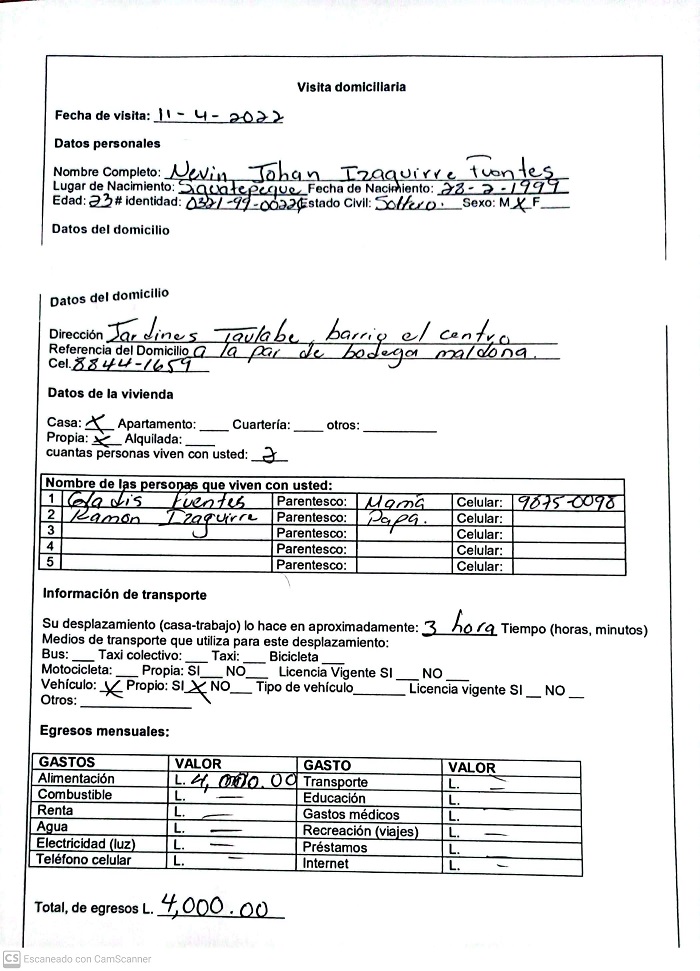 Visita domiciliaria
Fecha de visita: 11-4-2022
Datos personales
Nombre Completo: Nevin Johan Izaguirre Fuentes
Lugar de Nacimiento: Siguatepeque Fecha de Nacimiento: 28-2-1999
Edad: 23 # identidad: 0321-99-00226 Estado Civil: Soltero. Sexo: M X F___
Datos del domicilio
Datos del domicilio
Dirección Jardines Taulabe, barrio el centro
Referencia del Domicilio a la par de bodega maldona.
Cel. 8844-1659
Datos de la vivienda
Casa: X Apartamento: ____ Cuartería: ____ otros: __________
Propia: X Alquilada: ____
cuantas personas viven con usted: 2
Nombre de las personas que viven con usted:
1 Gladis Fuentes Parentesco: Mamá Celular: 9875-0098
2 Ramon Izaguirre Parentesco: Papa. Celular:
3 Parentesco: Celular:
4 Parentesco: Celular:
5 Parentesco: Celular:
Información de transporte
Su desplazamiento (casa-trabajo) lo hace en aproximadamente: 3 hora Tiempo (horas, minutos)
Medios de transporte que utiliza para este desplazamiento:
Bus: ___ Taxi colectivo: ___ Taxi: ___ Bicicleta ___
Motocicleta: ___ Propia: SI___ NO___ Licencia Vigente SI ___ NO ___
Vehículo: X Propio: SI X NO___ Tipo de vehículo_______ Licencia vigente SI __ NO __
Otros: _______________
Egresos mensuales:
GASTOS VALOR GASTO VALOR
Alimentación L. 4,000.00 Transporte L. —
Combustible L. — Educación L.
Renta L. — Gastos médicos L.
Agua L. — Recreación (viajes) L. —
Electricidad (luz) L. — Préstamos L.
Teléfono celular L. — Internet L. —
Total, de egresos L. 4,000.00
CS Escaneado con CamScanner